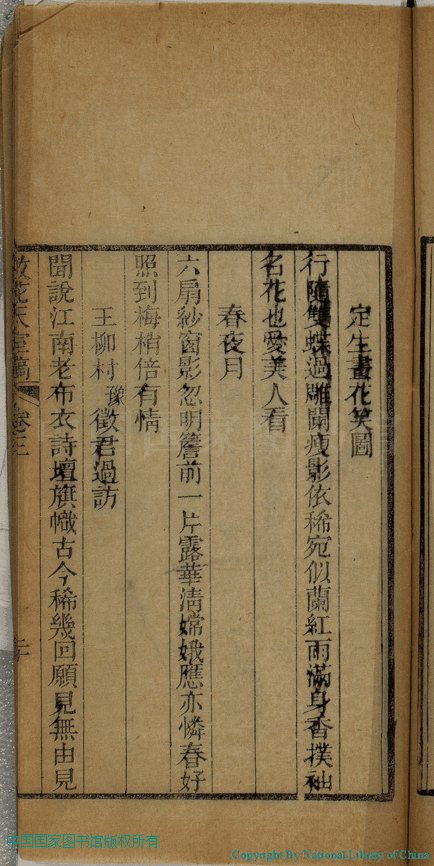 定生畫花笑圖
行隨雙蝶過雕闌瘦影依稀宛似蘭紅雨滿身香撲袖
名花也愛美人看
春夜月
六扇紗窗影忽明簷前一片露華清嫦娥應亦憐春好
照到梅梢倍有情
王柳村豫徵君過訪
聞說江南老布衣詩壇旗幟古今稀幾回願見無由見
花天
稿
卷三
中国国家图书馆版权所有
Copyright By National Library of China